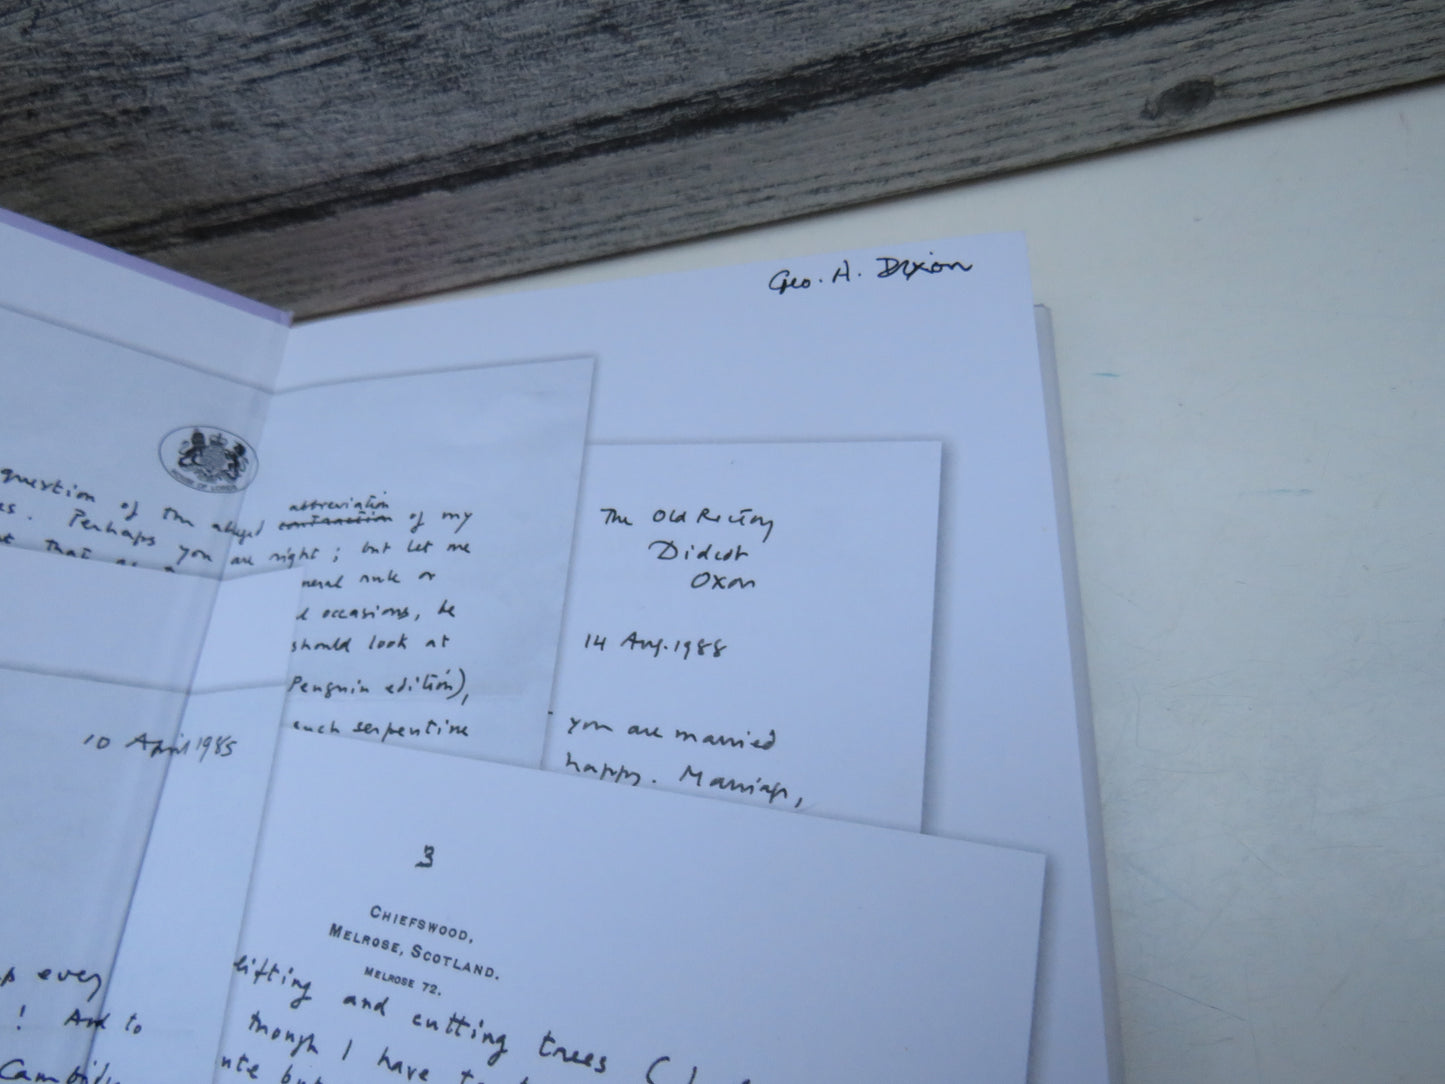 Geo. A. Dixon
question of the alleged abbreviation contraction of my
es. Perhaps you are right; but let me
that as a
neral rule or
occasions, he
should look at
Penguin edition),
such serpentine
The Old Rectory
Didcot
Oxon
14 Aug. 1988
you are married
happy. Marriage,
10 April 1985
3
CHIEFSWOOD,
MELROSE, SCOTLAND.
MELROSE 72.
p every
! And to
lifting and cutting trees (
though I have to